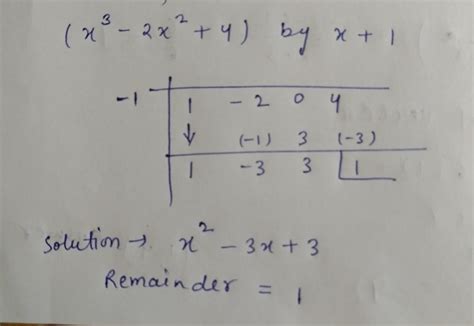 (x³ - 2x² + 4) by x + 1
-1 | 1 - 2 0 4
↓ (-1) 3 (-3)
1 -3 3 | 1
Solution → x² - 3x + 3
Remainder = 1